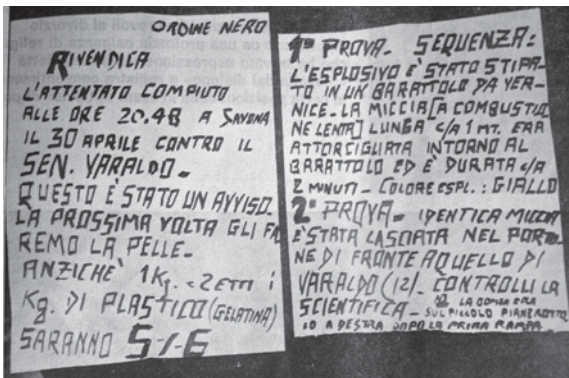 ORDINE NERO
RIVENDICA
L'ATTENTATO COMPIUTO
ALLE ORE 20.48 A SAVONA
IL 30 APRILE CONTRO IL
SEN. VARALDO-
QUESTO È STATO UN AVVISO.
LA PROSSIMA VOLTA GLI FA
REMO LA PELLE-
ANZICHÈ 1 Kg. e 2 ETTI i
Kg. DI PLASTICO (GELATINA)
SARANNO 5-/-6
1ª PROVA- SEQUENZA:
L'ESPLOSIVO È STATO STIPA-
TO IN UN BARATTOLO DA VER-
NICE. LA MICCIA [A COMBUSTIO
NE LENTA] LUNGA c/a 1 MT. ERA
ATTORCIGLIATA INTORNO AL
BARATTOLO ED È DURATA c/a
2 MINUTI- COLORE ESPL.: GIALLO
2ª PROVA- IDENTICA MICCIA
È STATA LASCIATA NEL PORTO-
NE DI FRONTE A QUELLO DI
VARALDO (12)- CONTROLLI LA
SCIENTIFICA- LA BOMBA ERA
SUL PICCOLO PIANEROTTO
LO A DESTRA DOPO LA PRIMA RAMPA-